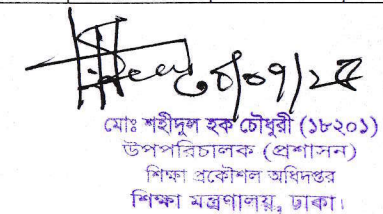 মোঃ শহীদুল হক চৌধুরী (১৮২০১)
উপপরিচালক (প্রশাসন)
শিক্ষা প্রকৌশল অধিদপ্তর
শিক্ষা মন্ত্রণালয়, ঢাকা।